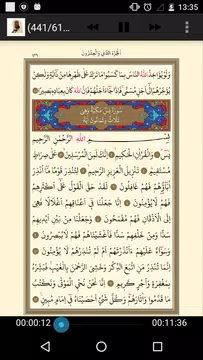 13:35
(441/61...
الجزء الثاني والعشرون
وَلَوْ يُؤَاخِذُ اللّٰهُ النَّاسَ بِمَا كَسَبُوا مَا تَرَكَ عَلٰى ظَهْرِهَا مِنْ دَابَّةٍ وَلٰكِنْ
يُؤَخِّرُهُمْ اِلٰٓى اَجَلٍ مُسَمًّى فَاِذَا جَٓاءَ اَجَلُهُمْ فَاِنَّ اللّٰهَ كَانَ بِعِبَادِهٖ بَصٖيرًا
سورة يس مكية وهي
ثلاث وثمانون آية
بِسْمِ اللّٰهِ الرَّحْمٰنِ الرَّحٖيمِ
يٰسٓ وَالْقُرْاٰنِ الْحَكٖيمِ اِنَّكَ لَمِنَ الْمُرْسَلٖينَ عَلٰى صِرَاطٍ
مُسْتَقٖيمٍ تَنْزٖيلَ الْعَزٖيزِ الرَّحٖيمِ لِتُنْذِرَ قَوْمًا مَٓا اُنْذِرَ
اٰبَٓاؤُهُمْ فَهُمْ غَافِلُونَ لَقَدْ حَقَّ الْقَوْلُ عَلٰٓى اَكْثَرِهِمْ
فَهُمْ لَا يُؤْمِنُونَ اِنَّا جَعَلْنَا فٖٓى اَعْنَاقِهِمْ اَغْلَالًا فَهِىَ
اِلَى الْاَذْقَانِ فَهُمْ مُقْمَحُونَ وَجَعَلْنَا مِنْ بَيْنِ اَيْدٖيهِمْ
سَدًّا وَمِنْ خَلْفِهِمْ سَدًّا فَاَغْشَيْنَاهُمْ فَهُمْ لَا يُبْصِرُونَ
وَسَوَٓاءٌ عَلَيْهِمْ ءَاَنْذَرْتَهُمْ اَمْ لَمْ تُنْذِرْهُمْ لَا يُؤْمِنُونَ
اِنَّمَا تُنْذِرُ مَنِ اتَّبَعَ الذِّكْرَ وَخَشِىَ الرَّحْمٰنَ بِالْغَيْبِ فَبَشِّرْهُ
بِمَغْفِرَةٍ وَاَجْرٍ كَرٖيمٍ اِنَّا نَحْنُ نُحْيِى الْمَوْتٰى وَنَكْتُبُ
مَا قَدَّمُوا وَاٰثَارَهُمْ وَكُلَّ شَىْءٍ اَحْصَيْنَاهُ فٖٓى اِمَامٍ مُبٖينٍ
00:00:12
00:11:36